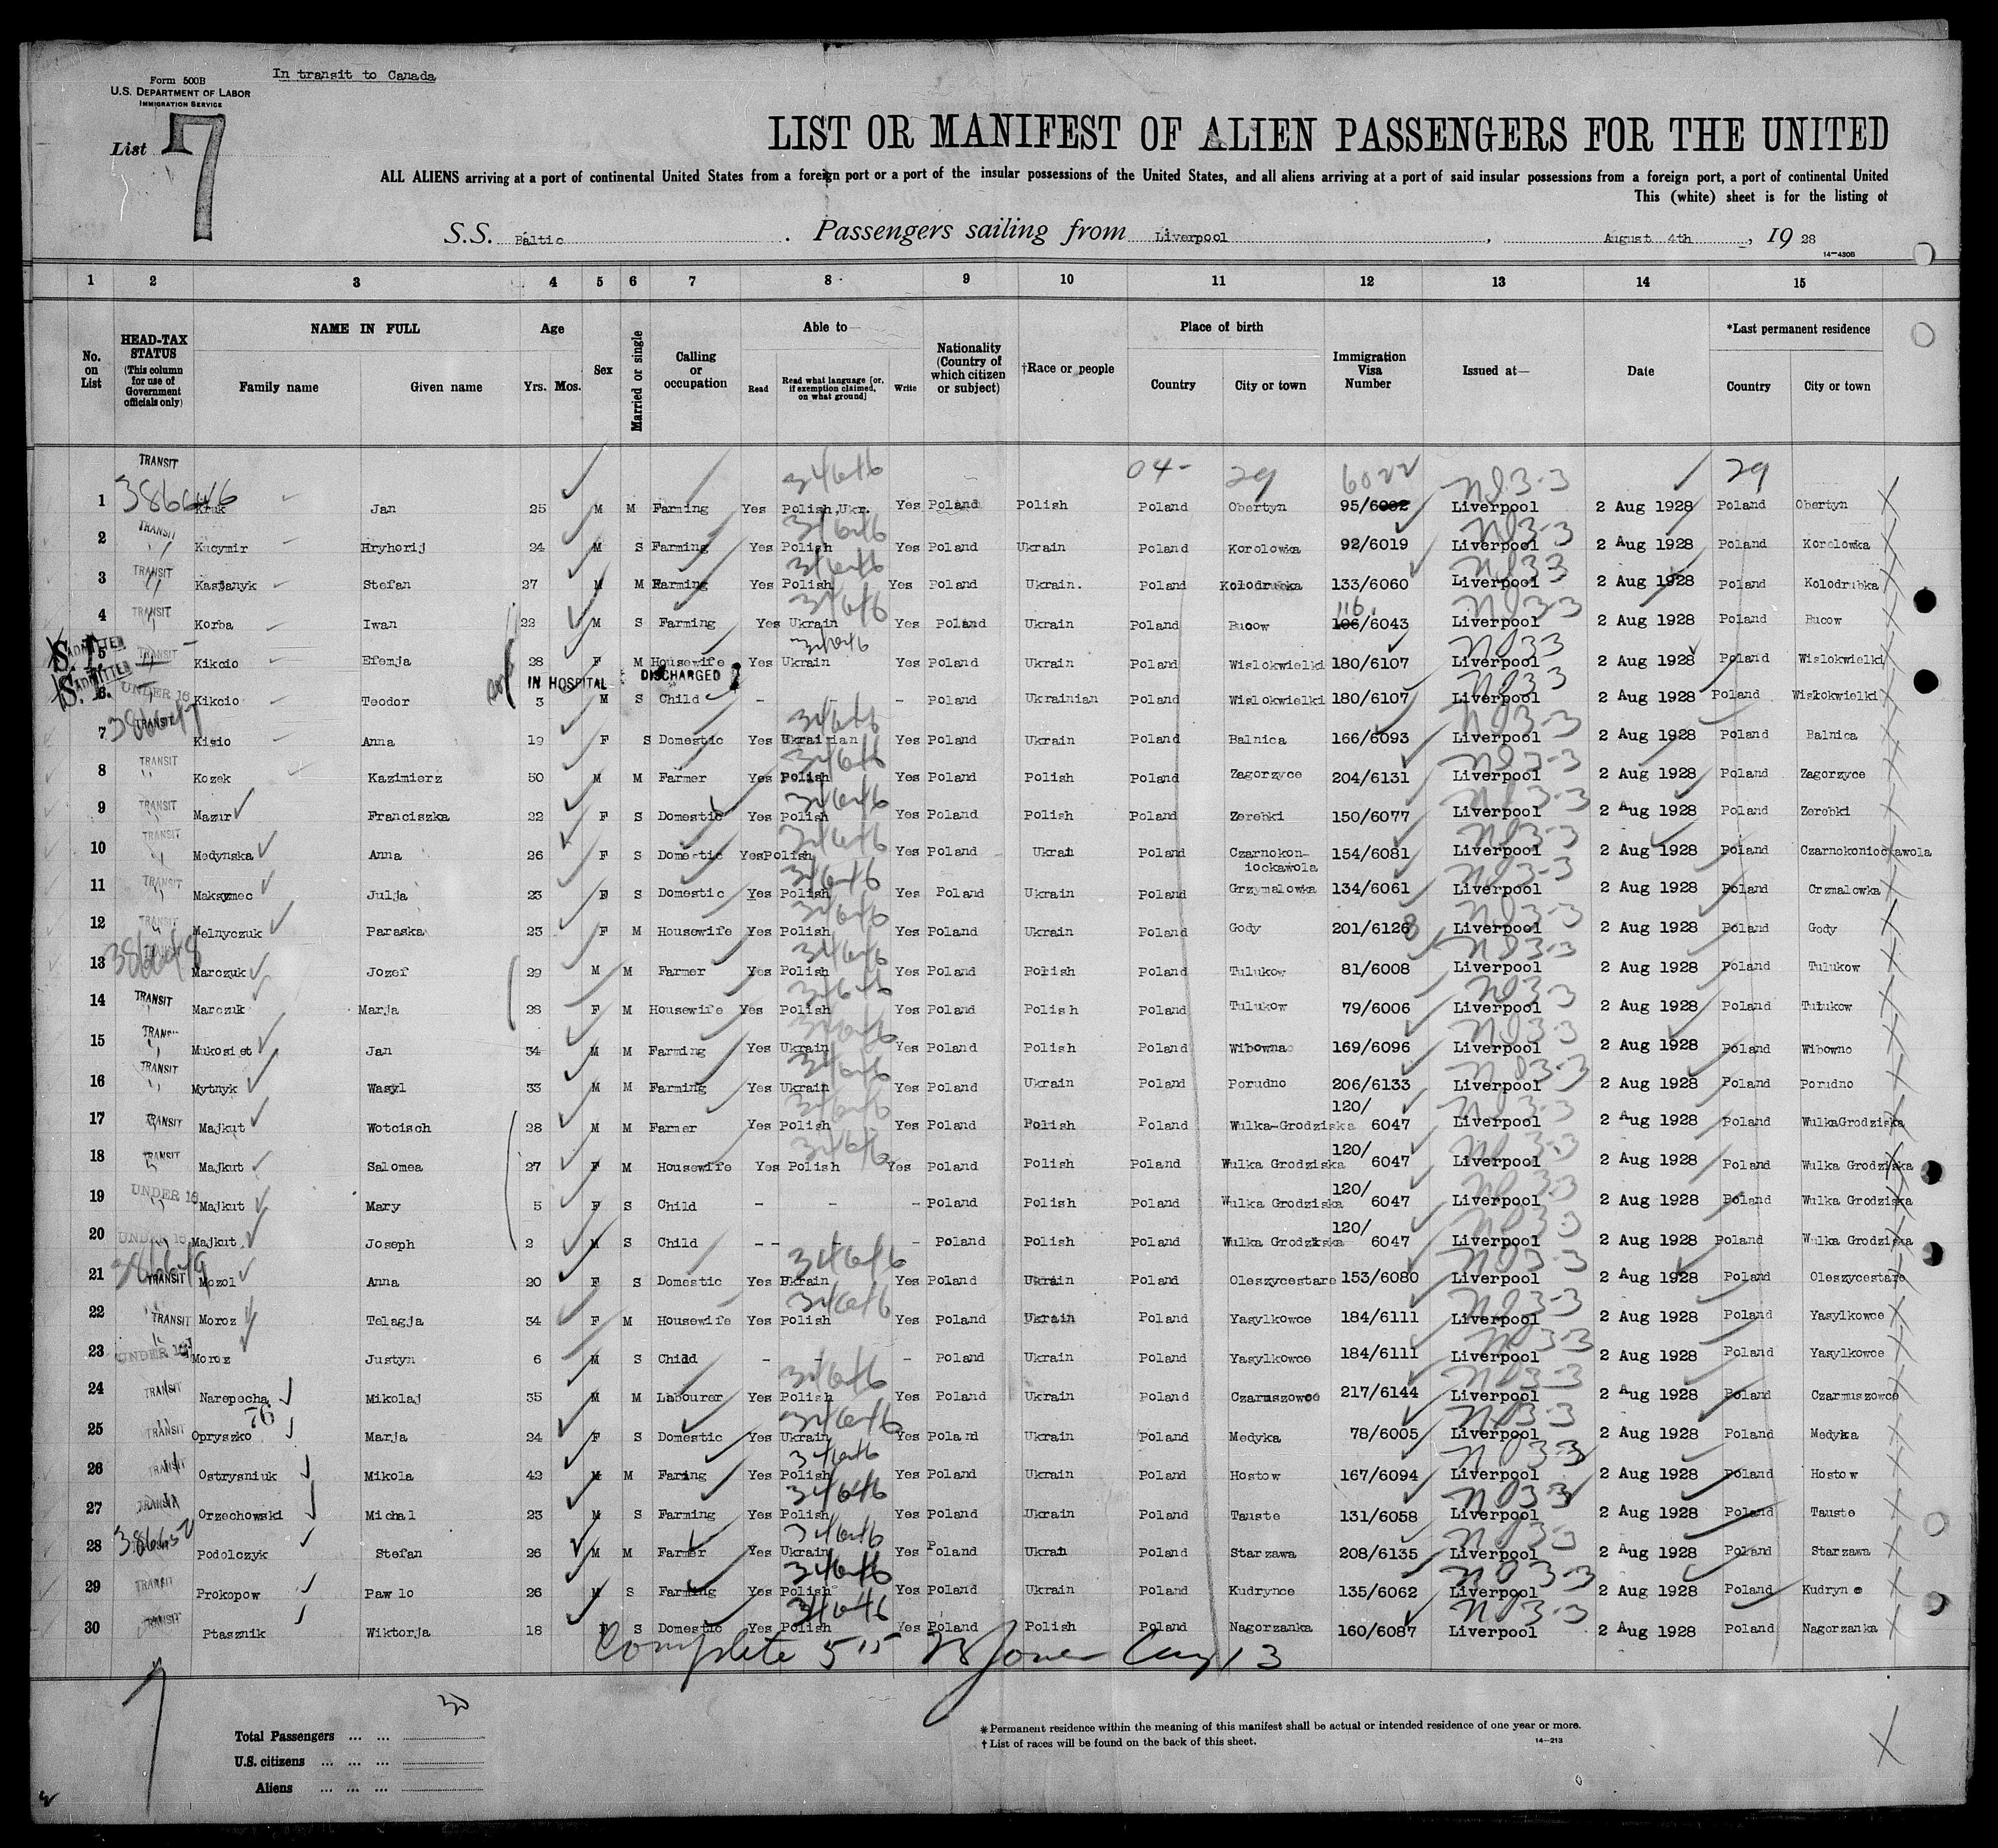 Form 500B
U.S. DEPARTMENT OF LABOR
IMMIGRATION SERVICE
In transit to Canada
List 7
LIST OR MANIFEST OF ALIEN PASSENGERS FOR THE UNITED
ALL ALIENS arriving at a port of continental United States from a foreign port or a port of the insular possessions of the United States, and all aliens arriving at a port of said insular possessions from a foreign port, a port of continental United
This (white) sheet is for the listing of
S.S. Baltic . Passengers sailing from Liverpool , August 4th , 19 28
14—430B
1 2 3 4 5 6 7 8 9 10 11 12 13 14 15
No. on List HEAD-TAX STATUS (This column for use of Government officials only) NAME IN FULL Family name Given name Age Yrs. Mos. Sex Married or single Calling or occupation Able to— Read Read what language [or, if exemption claimed, on what ground] Write Nationality (Country of which citizen or subject) †Race or people Place of birth Country City or town Immigration Visa Number Issued at— Date *Last permanent residence Country City or town
TRANSIT 34646 04- 29 6022 29
1 386646 Kruk Jan 25 M M Farming Yes Polish,Ukr. Yes Poland Polish Poland Obertyn 95/6002 Liverpool 2 Aug 1928 Poland Obertyn
2 TRANSIT Kucymir Hryhorij 24 M S Farming Yes Polish Yes Poland Ukrain Poland Korolowka 92/6019 Liverpool 2 Aug 1928 Poland Korolowka
3 TRANSIT Kasjanyk Stefan 27 M M Farming Yes Polish Yes Poland Ukrain. Poland Kolodrubka 133/6060 Liverpool 2 Aug 1928 Poland Kolodrubka
4 TRANSIT Korba Iwan 22 M S Farming Yes Ukrain Yes Poland Ukrain Poland Bucow 116 106/6043 Liverpool 2 Aug 1928 Poland Bucow
5 ADMITTED TRANSIT Kikcio Efemja 28 F M Housewife Yes Ukrain Yes Poland Ukrain Poland Wislokwielki 180/6107 Liverpool 2 Aug 1928 Poland Wislokwielki
IN HOSPITAL DISCHARGED
6 ADMITTED UNDER 16 Kikcio Teodor 3 M S Child - - Poland Ukrainian Poland Wislokwielki 180/6107 Liverpool 2 Aug 1928 Poland Wislokwielki
7 386647 TRANSIT Kisio Anna 19 F S Domestic Yes Ukrainian Yes Poland Ukrain Poland Balnica 166/6093 Liverpool 2 Aug 1928 Poland Balnica
8 TRANSIT Kozek Kazimierz 50 M M Farmer Yes Polish Yes Poland Polish Poland Zagorzyce 204/6131 Liverpool 2 Aug 1928 Poland Zagorzyce
9 TRANSIT Mazur Franciszka 22 F S Domestic Yes Polish Yes Poland Polish Poland Zerebki 150/6077 Liverpool 2 Aug 1928 Poland Zerebki
10 TRANSIT Medynska Anna 26 F S Domestic Yes Polish Yes Poland Ukrain Poland Czarnokoniockawola 154/6081 Liverpool 2 Aug 1928 Poland Czarnokoniockawola
11 TRANSIT Maksymec Julja 23 F S Domestic Yes Polish Yes Poland Ukrain Poland Grzymalowka 134/6061 Liverpool 2 Aug 1928 Poland Crzmalowka
12 TRANSIT Melnyczuk Paraska 23 F M Housewife Yes Polish Yes Poland Ukrain Poland Gody 201/6128 Liverpool 2 Aug 1928 Poland Gody
13 386648 Marczuk Jozef 29 M M Farmer Yes Polish Yes Poland Polish Poland Tulukow 81/6008 Liverpool 2 Aug 1928 Poland Tulukow
14 TRANSIT Marczuk Marja 28 F M Housewife Yes Polish Yes Poland Polish Poland Tulukow 79/6006 Liverpool 2 Aug 1928 Poland Tulukow
15 TRANSIT Mukosiet Jan 34 M M Farming Yes Ukrain Yes Poland Polish Poland Wibowna 169/6096 Liverpool 2 Aug 1928 Poland Wibowno
16 TRANSIT Mytnyk Wasyl 33 M M Farming Yes Ukrain Yes Poland Ukrain Poland Porudno 206/6133 Liverpool 2 Aug 1928 Poland Porudno
17 TRANSIT Majkut Wotcisch 28 M M Farmer Yes Polish Yes Poland Polish Poland Wulka-Grodziska 120/6047 Liverpool 2 Aug 1928 Poland WulkaGrodziska
18 TRANSIT Majkut Salomea 27 F M Housewife Yes Polish Yes Poland Polish Poland Wulka Grodziska 120/6047 Liverpool 2 Aug 1928 Poland Wulka Grodziska
19 UNDER 16 Majkut Mary 5 F S Child - - - Poland Polish Poland Wulka Grodziska 120/6047 Liverpool 2 Aug 1928 Poland Wulka Grodziska
20 UNDER 16 Majkut Joseph 2 M S Child -- - - Poland Polish Poland Wulka Grodziska 120/6047 Liverpool 2 Aug 1928 Poland Wulka Grodziska
21 386649 TRANSIT Mozol Anna 20 F S Domestic Yes Ukrain Yes Poland Ukrain Poland Oleszycestare 153/6080 Liverpool 2 Aug 1928 Poland Oleszycestare
22 TRANSIT Moroz Telagja 34 F M Housewife Yes Polish Yes Poland Ukrain Poland Yasylkowce 184/6111 Liverpool 2 Aug 1928 Poland Yasylkowce
23 UNDER 16 Moroz Justyn 6 M S Child - - - Poland Ukrain Poland Yasylkowce 184/6111 Liverpool 2 Aug 1928 Poland Yasylkowce
24 TRANSIT Narepecha Mikolaj 35 M M Labourer Yes Polish Yes Poland Ukrain Poland Czarnuszowce 217/6144 Liverpool 2 Aug 1928 Poland Czarnuszowce
76
25 TRANSIT Opryszko Marja 24 F S Domestic Yes Ukrain Yes Poland Ukrain Poland Medyka 78/6005 Liverpool 2 Aug 1928 Poland Medyka
26 TRANSIT Ostrysniuk Mikola 42 M M Faring Yes Polish Yes Poland Ukrain Poland Hostow 167/6094 Liverpool 2 Aug 1928 Poland Hostow
27 TRANSIT Orzechowski Michal 23 M S Farming Yes Polish Yes Poland Ukrain Poland Tauste 131/6058 Liverpool 2 Aug 1928 Poland Tauste
28 Podolczyk Stefan 26 M M Farmer Yes Ukrain Yes Poland Ukrain Poland Starzawa 208/6135 Liverpool 2 Aug 1928 Poland Starzawa
29 TRANSIT Prokopow Pawlo 26 M S Farming Yes Polish Yes Poland Ukrain Poland Kudrynce 135/6062 Liverpool 2 Aug 1928 Poland Kudryn e
30 TRANSIT Ptasznik Wiktorja 18 F S Domestic Yes Polish Yes Poland Polish Poland Nagorzanka 160/6087 Liverpool 2 Aug 1928 Poland Nagorzanka
Complete 515 Jones Aug 13
30
Total Passengers ... ...
U.S. citizens ... ... ...
Aliens ... ... ...
*Permanent residence within the meaning of this manifest shall be actual or intended residence of one year or more.
†List of races will be found on the back of this sheet.
14—213